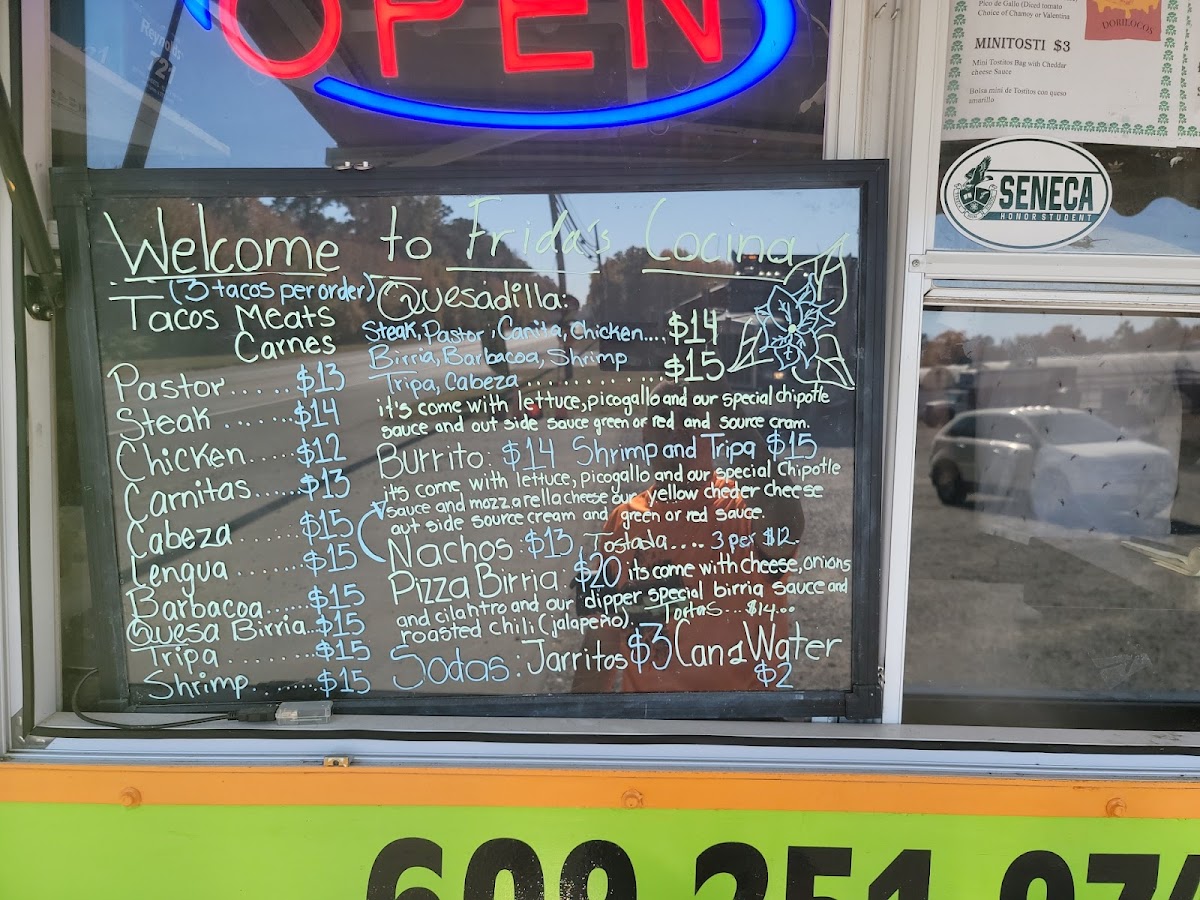 OPEN
Pico de Gallo (Diced tomato
Choice of Chamoy or Valentina
DORILOCOS
MINITOSTI $3
Mini Tostitos Bag with Cheddar
cheese Sauce
Bolsa mini de Tostitos con queso
amarillo
SENECA
HONOR STUDENT
Welcome to Frida's Cocina
(3 tacos per order)
Tacos Meats
Carnes
Pastor......$13
Steak.......$14
Chicken.....$12
Carnitas.....$13
Cabeza......$15
Lengua.......$15
Barbacoa......$15
Quesa Birria...$15
Tripa........$15
Shrimp........$15
Quesadilla:
Steak, Pastor, Canita, Chicken....$14
Birria, Barbacoa, Shrimp
Tripa, Cabeza............$15
it's come with lettuce, picogallo and our special chipotle
sauce and out side sauce green or red and source cram.
Burrito: $14 Shrimp and Tripa $15
it's come with lettuce, picogallo and our special Chipotle
sauce and mozzarella cheese our yellow cheder cheese
out side source cream and green or red sauce.
Nachos: $13 Tostada.... 3 per $12.
Pizza Birria: $20 its come with cheese, onions
and cilantro and our dipper special birria sauce and
roasted chili (jalapeño). Tortas...$14.00
Sodas: Jarritos $3 Can & Water
$2
609 251 07